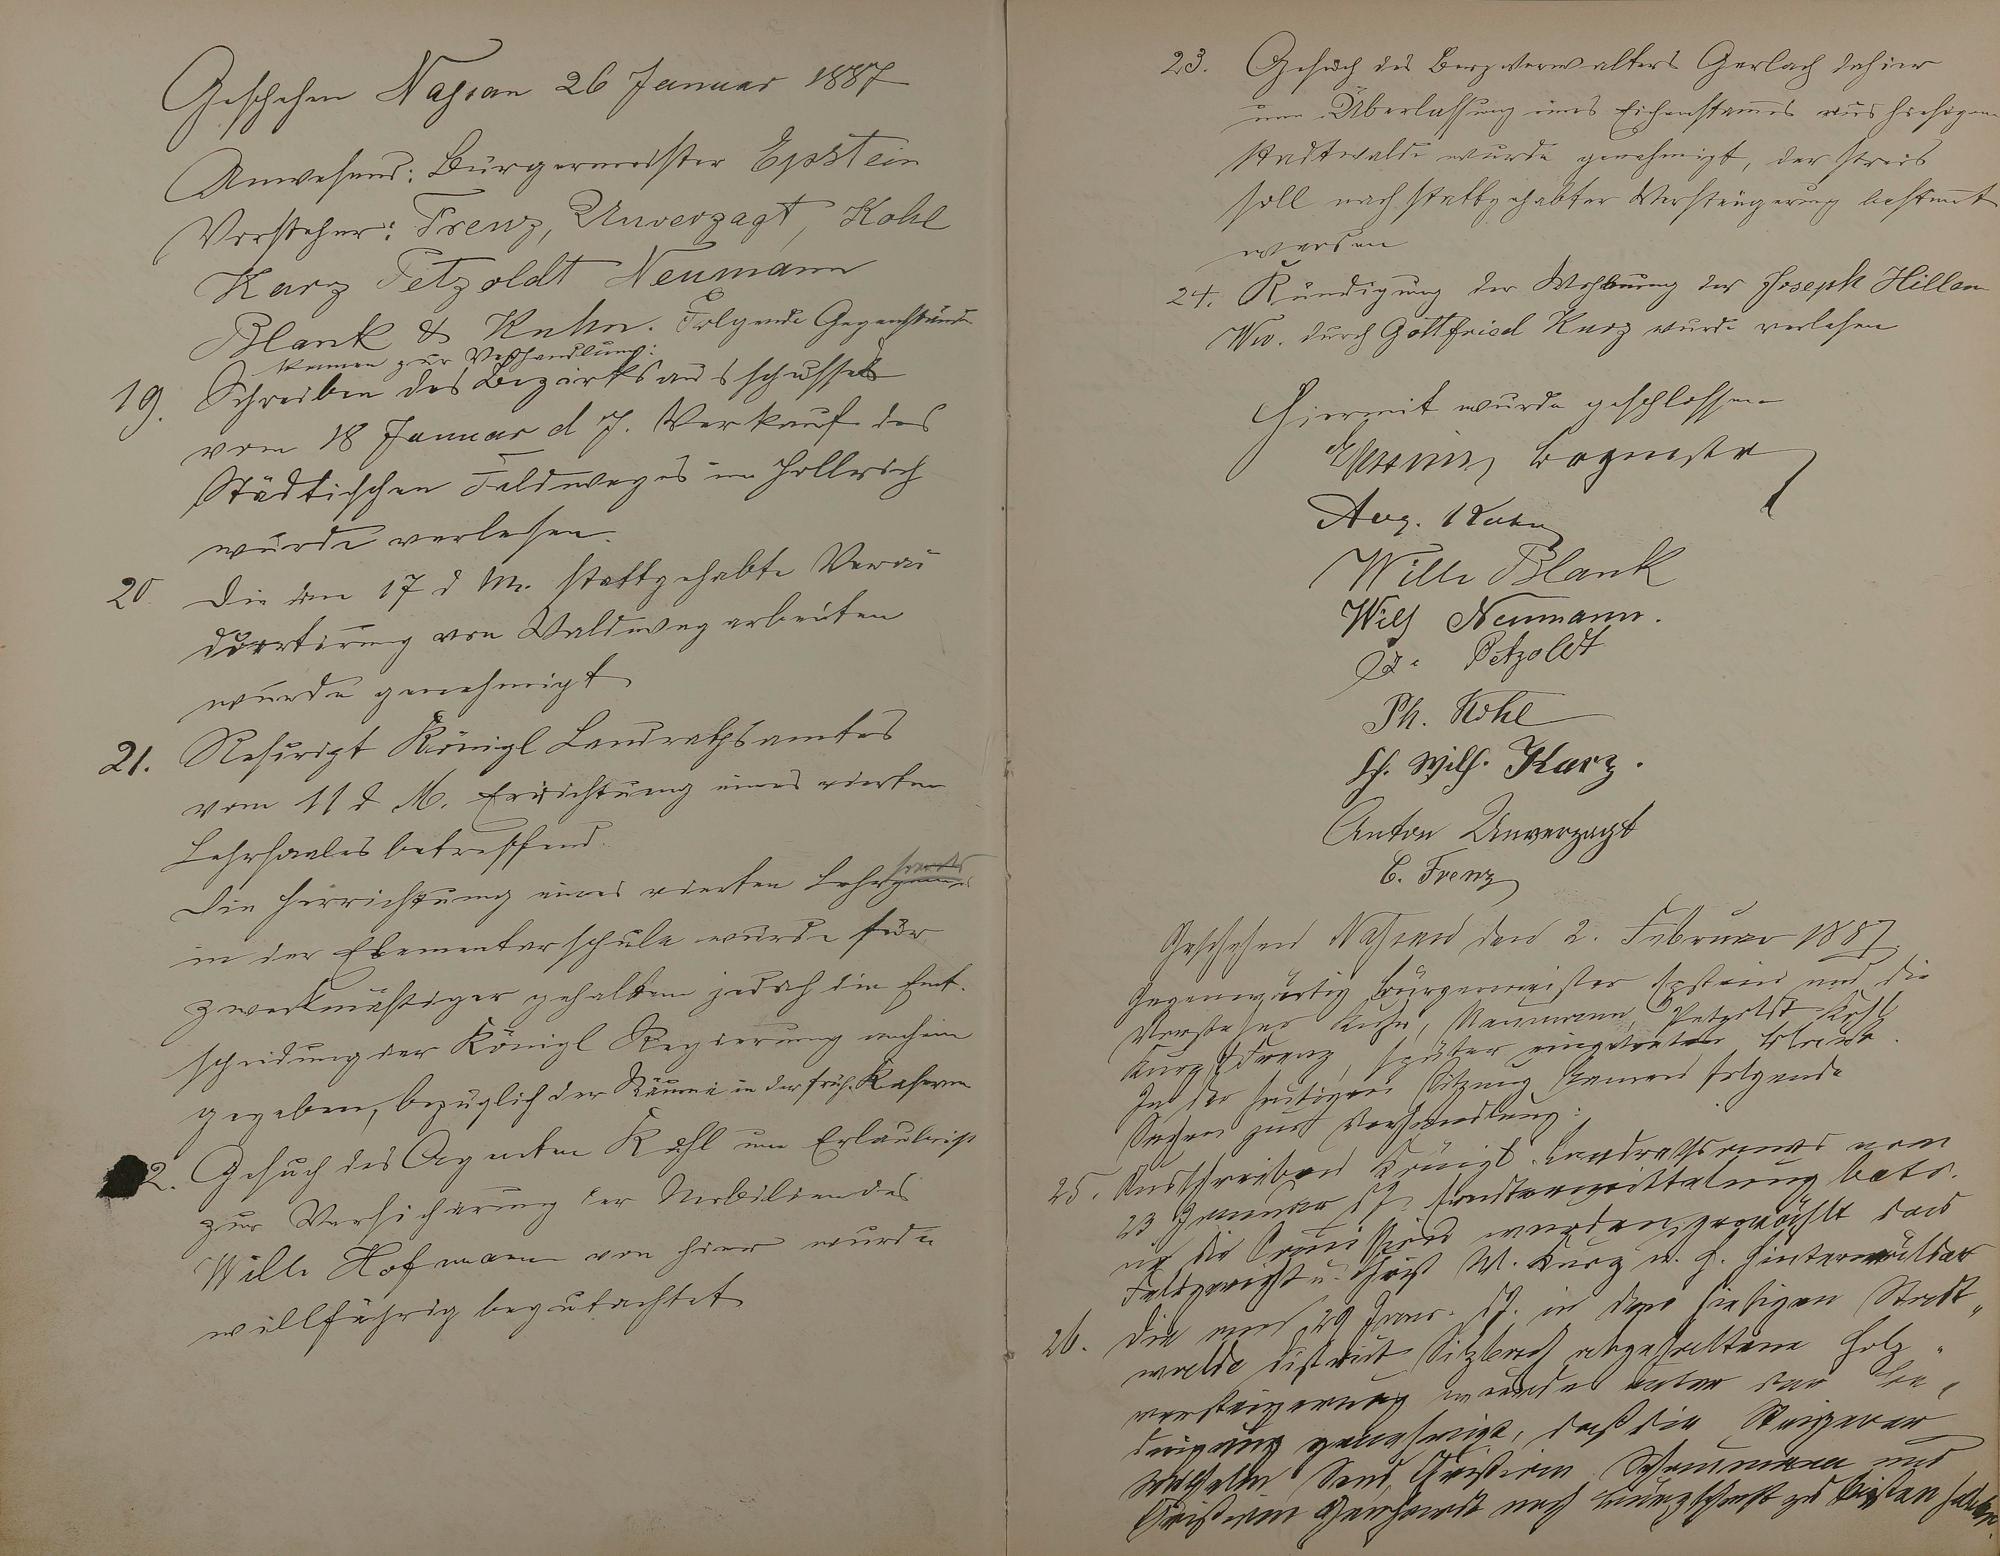 Geschehen Nassau 26 Januar 1887
Anwesend: Bürgermeister Epstein
Vorsteher: Trenz, Unverzagt, Kohl
Kurz Petzoldt Neumann
Blank & Kuhn. Folgende Gegenstände
kamen zur Verhandlung:
19. Schreiben des Bezirksausschusses
vom 18 Januar d J. Verkauf des
Städtischen Feldweges im Hollerich
wurde verlesen.
20 Die den 17 d M. stattgehabte Verac
cordirung von Waldwegarbeiten
wurde genehmigt
21. Rescript Königl Landrathsamtes
vom 11 d M. Errichtung eines vierten
Lehrsaales betreffend.
Die Herrichtung eines vierten Lehrsaales
in der Elementarschule wurde für
zweckmäßiger gehalten jedoch die Ent-
scheidung der Königl Regierung anheim
gegeben, bezüglich der Räume in der früh. Kaserne
22. Gesuch des Agenten Kuhl um Erlaubniß
zur Versicherung der Mobilien des
Wilh Hofmann von hier wurde
willfährig begutachtet
23. Gesuch des Bergverwalters Gerlach dahier
um Überlassung eines Eichenstammes aus hiesigem
Stadtwalde wurde genehmigt, der Preis
soll nach stattgehabter Versteigerung bestimmt
werden
24. Kündigung der Wohnung der Joseph Hillen
Ww. durch Gottfried Kurz wurde verlesen
Hiermit wurde geschlossen
Epstein, Bürgermstr
Aug. Kuhn
Wilh Blank
Wilh Neumann.
Petzoldt
Ph. Kohl
Ch. Wilh. Kurz.
Anton Unverzagt
C. Trenz
Geschehen Nassau den 2. Februar 1887
Gegenwärtig Bürgermeister Epstein und die
Vorsteher Kuhn, Neumann, Petzoldt Kohl
Kurz & Trenz, später eingetreten Blank.
In der heutigen Sitzung kamen folgende
Sachen zur Verhandlung:
25. Ausschreiben Königl. Landrathsamts vom
23 Januar d J. betr.
in die Comission wurden gewählt das
Feldgericht u. Christ W. Kurz u. H. Hinterwälder
26. Die am 29 Janr. d J. in dem hiesigen Stadt„
walde District Sitzbach abgehaltene Holz„
versteigerung wurde unter der Be„
dingung genehmigt, daß die Steigerer
Wilhelm Christian und
Christian noch Bürgschaft zu leisten haben.